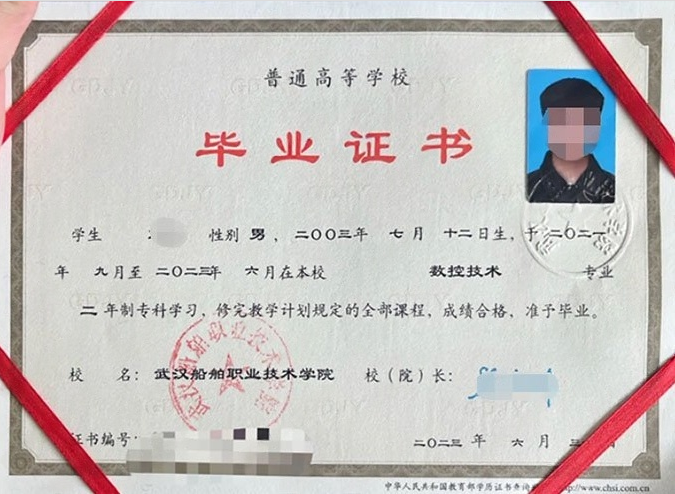 普通高等学校
毕业证书
学生 性别 男 ，二〇〇三年 七 月 十二日生，于二〇二一
年 九月至 二〇二三年 六月在本校 数控技术 专业
二 年制专科学习，修完教学计划规定的全部课程，成绩合格，准予毕业。
校 名：武汉船舶职业技术学院 校（院）长：
武汉船舶职业技术学院
证书编号：
二〇二三 年 六 月
中华人民共和国教育部学历证书查询 http://www.chsi.com.cn